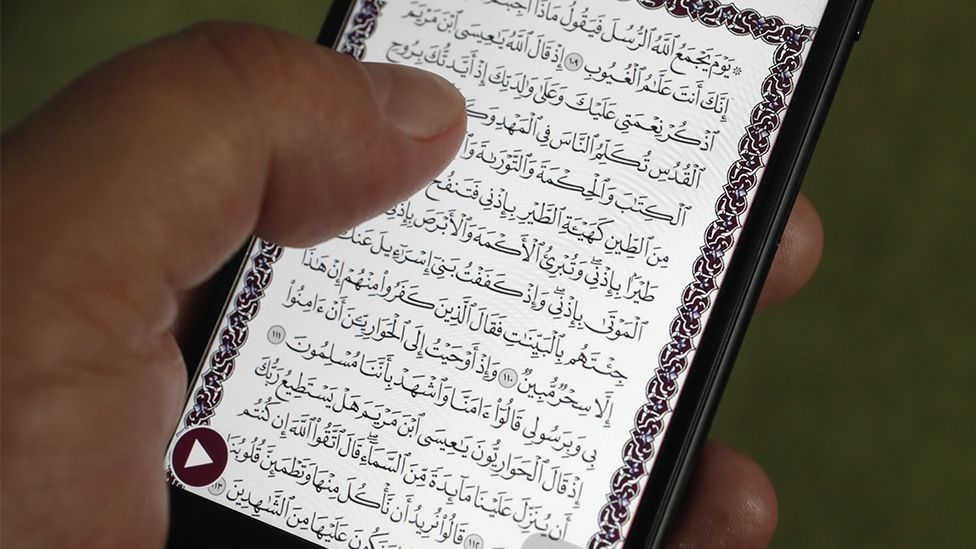 ۞ يَوْمَ يَجْمَعُ ٱللَّهُ ٱلرُّسُلَ فَيَقُولُ مَاذَآ أُجِبْتُمْ
إِنَّكَ أَنتَ عَلَّٰمُ ٱلْغُيُوبِ ١٠٩ إِذْ قَالَ ٱللَّهُ يَٰعِيسَى ٱبْنَ مَرْيَمَ
ٱذْكُرْ نِعْمَتِي عَلَيْكَ وَعَلَىٰ وَٰلِدَتِكَ إِذْ أَيَّدتُّكَ بِرُوحِ
ٱلْقُدُسِ تُكَلِّمُ ٱلنَّاسَ فِي ٱلْمَهْدِ
ٱلْكِتَٰبَ وَٱلْحِكْمَةَ وَٱلتَّوْرَىٰةَ
مِنَ ٱلطِّينِ كَهَيْـَٔةِ ٱلطَّيْرِ بِإِذْنِي فَتَنفُخُ
طَيْرًۢا بِإِذْنِيۖ وَتُبْرِئُ ٱلْأَكْمَهَ وَٱلْأَبْرَصَ بِإِذْنِي
ٱلْمَوْتَىٰ بِإِذْنِيۖ وَإِذْ كَفَفْتُ بَنِيٓ إِسْرَٰٓءِيلَ عَنكَ
جِئْتَهُم بِٱلْبَيِّنَٰتِ فَقَالَ ٱلَّذِينَ كَفَرُوا۟ مِنْهُمْ إِنْ هَٰذَآ
إِلَّا سِحْرٌ مُّبِينٌ ١١٠ وَإِذْ أَوْحَيْتُ إِلَى ٱلْحَوَارِيِّـۧنَ أَنْ ءَامِنُوا۟
بِي وَبِرَسُولِي قَالُوٓا۟ ءَامَنَّا وَٱشْهَدْ بِأَنَّنَا مُسْلِمُونَ ١١١
إِذْ قَالَ ٱلْحَوَارِيُّونَ يَٰعِيسَى ٱبْنَ مَرْيَمَ هَلْ يَسْتَطِيعُ رَبُّكَ
أَن يُنَزِّلَ عَلَيْنَا مَآئِدَةً مِّنَ ٱلسَّمَآءِۖ قَالَ ٱتَّقُوا۟ ٱللَّهَ إِن كُنتُم
١١٢ قَالُوا۟ نُرِيدُ أَن نَّأْكُلَ مِنْهَا وَتَطْمَئِنَّ قُلُوبُنَا
وَنَكُونَ عَلَيْهَا مِنَ ٱلشَّٰهِدِينَ ١١٣